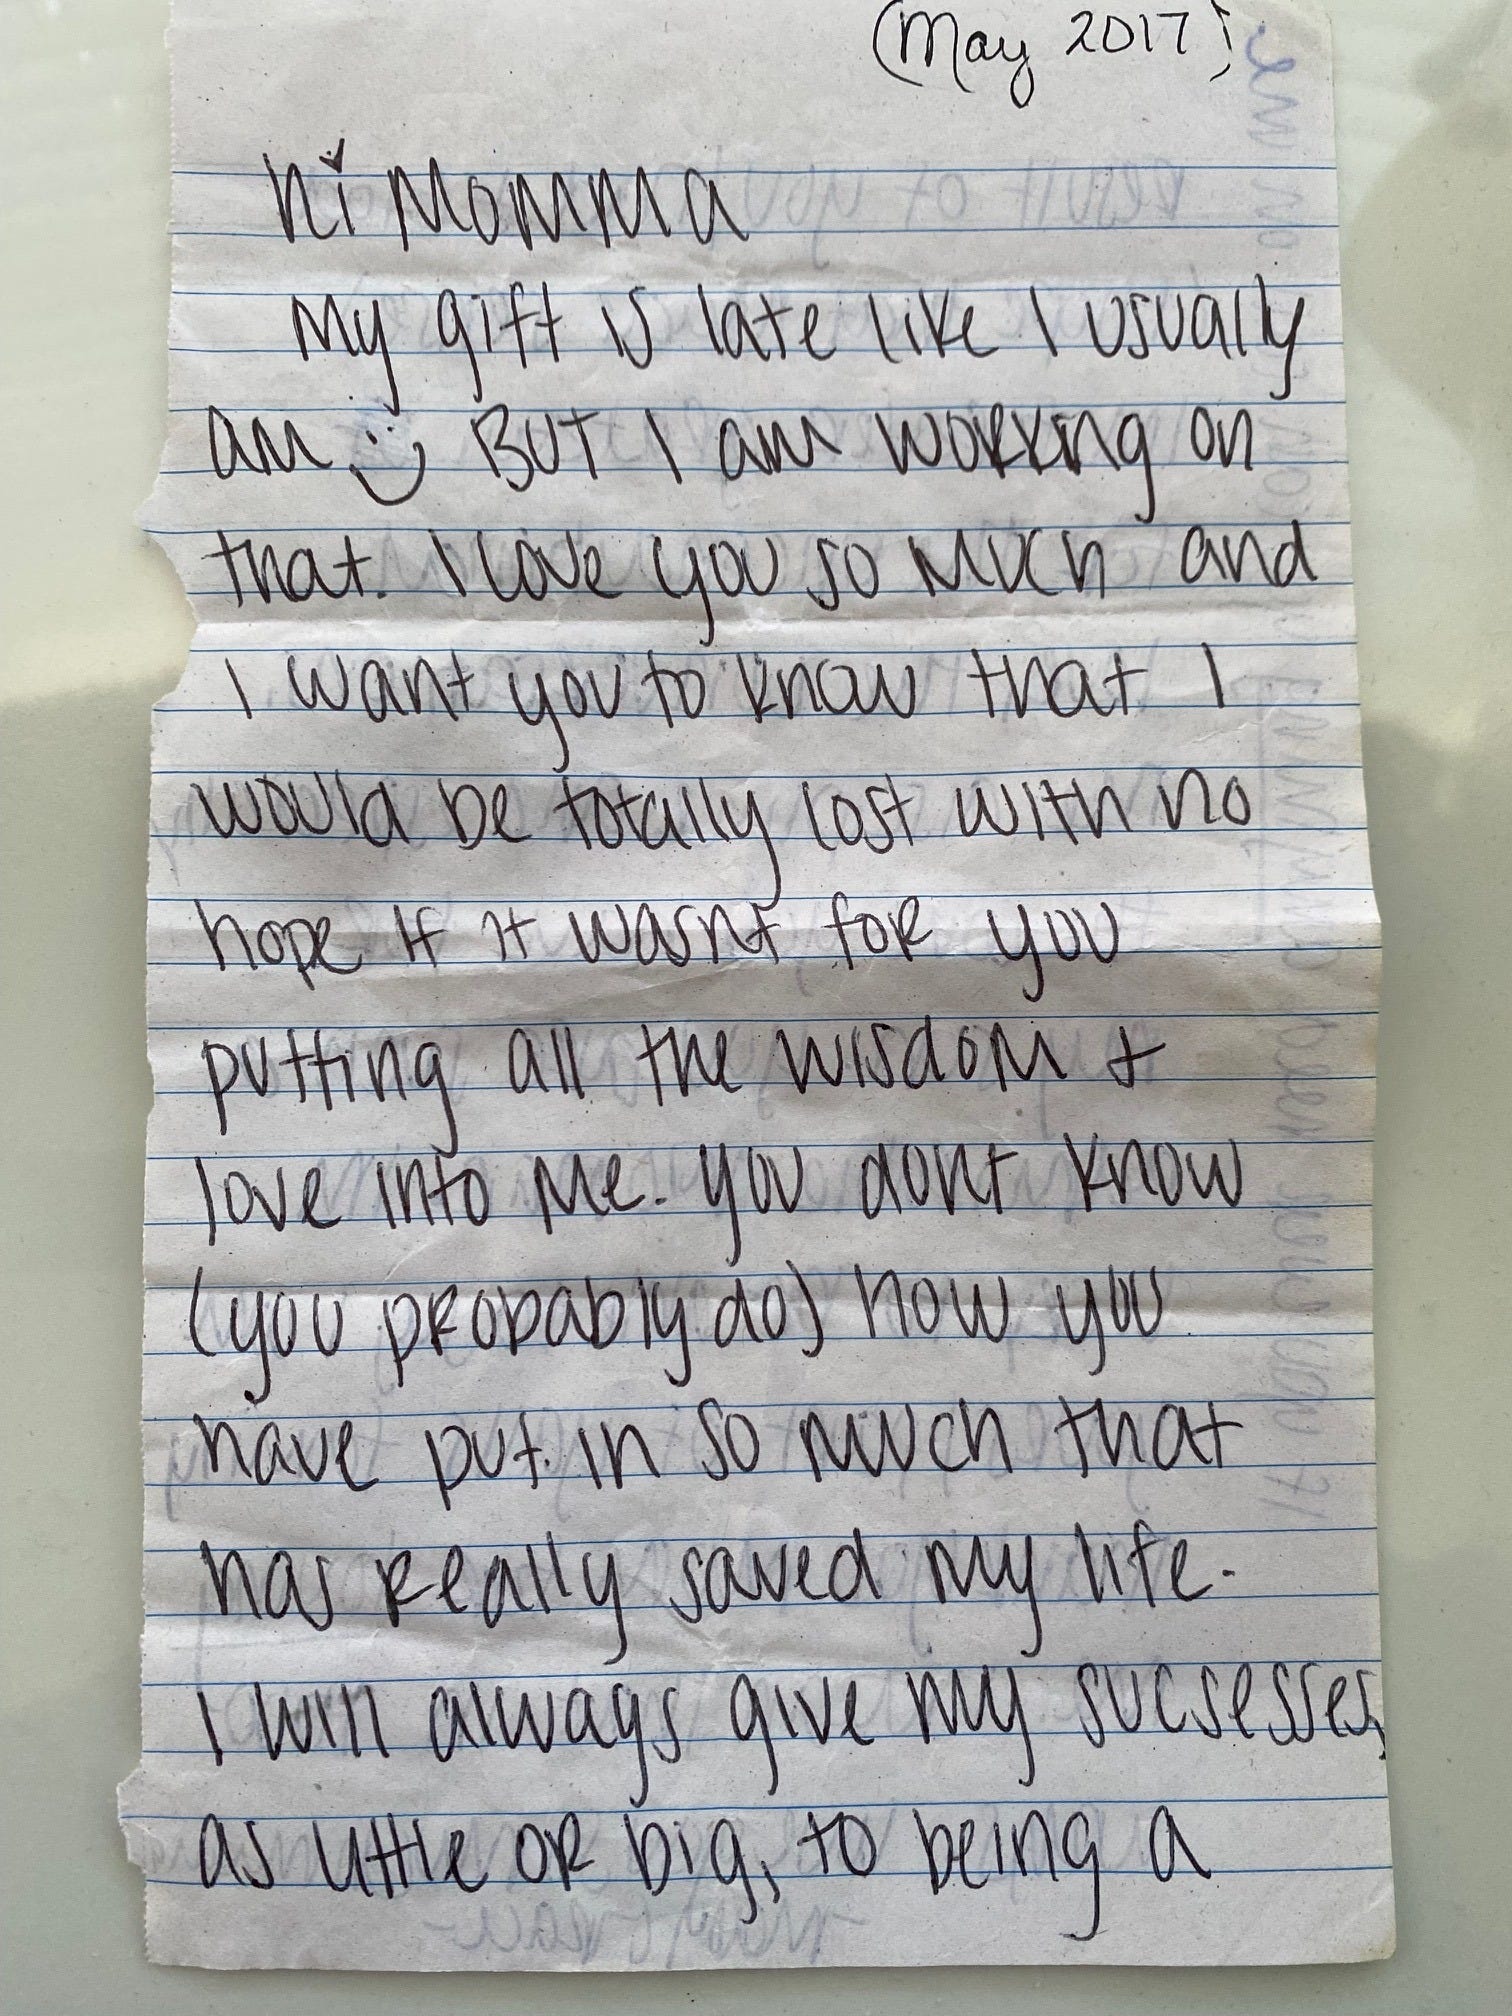 (May 2017)
hi Momma
My gift is late like I usually
am :) But I am working on
that. I love you so much and
I want you to know that I
would be totally lost with no
hope if it wasnt for you
putting all the wisdom +
love into me. you dont know
(you probably do) how you
have put in so much that
has really saved my life.
I will always give my sucsesses,
as little or big, to being a